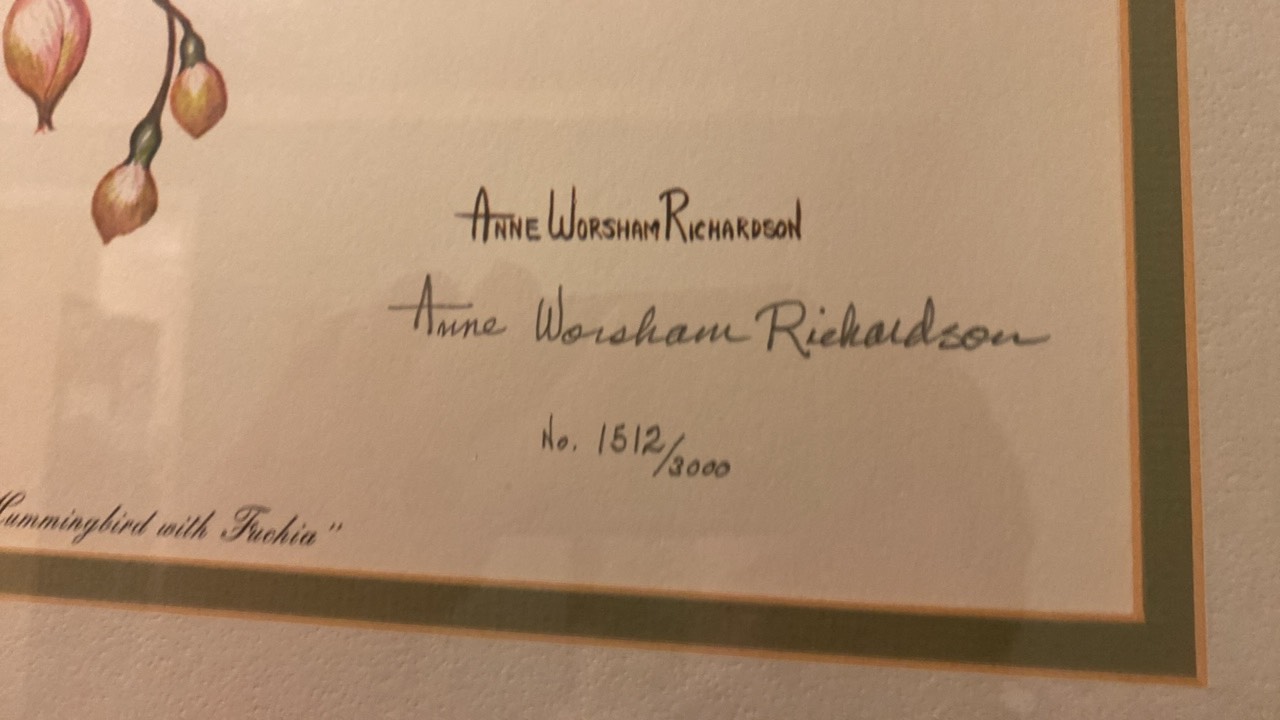 ANNE WORSHAM RICHARDSON
Anne Worsham Richardson
No. 1512/3000
Hummingbird with Fuchia"